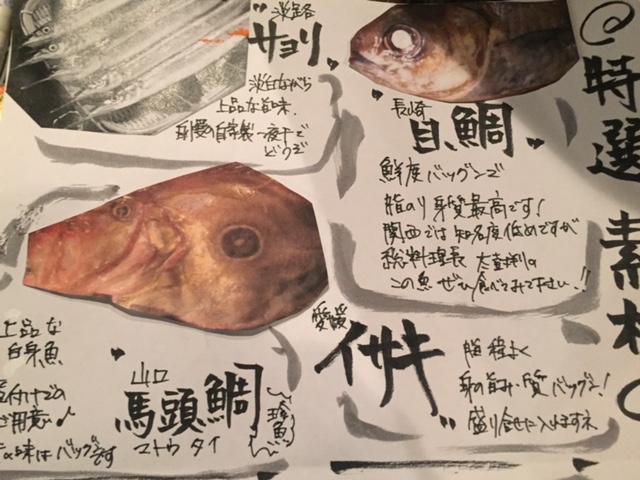 特選素材
長崎
目鯛
鮮度バツグンで
脂のり身質最高です!
関西では知名度低めですが
総料理長 太鼓判の
この魚ぜひ食べてみて下さい!!
淡路
サヨリ
淡白ながら
上品な旨味、
自慢の自家製一夜干で
どうぞ
愛媛
イサキ
脂程よく
身の旨み・質バツグン!
盛り合せに入れますネ
山口
馬頭鯛
マトウタイ
珍魚
上品な
白身魚
煮付けでの
ご用意♪
味はバツグンです